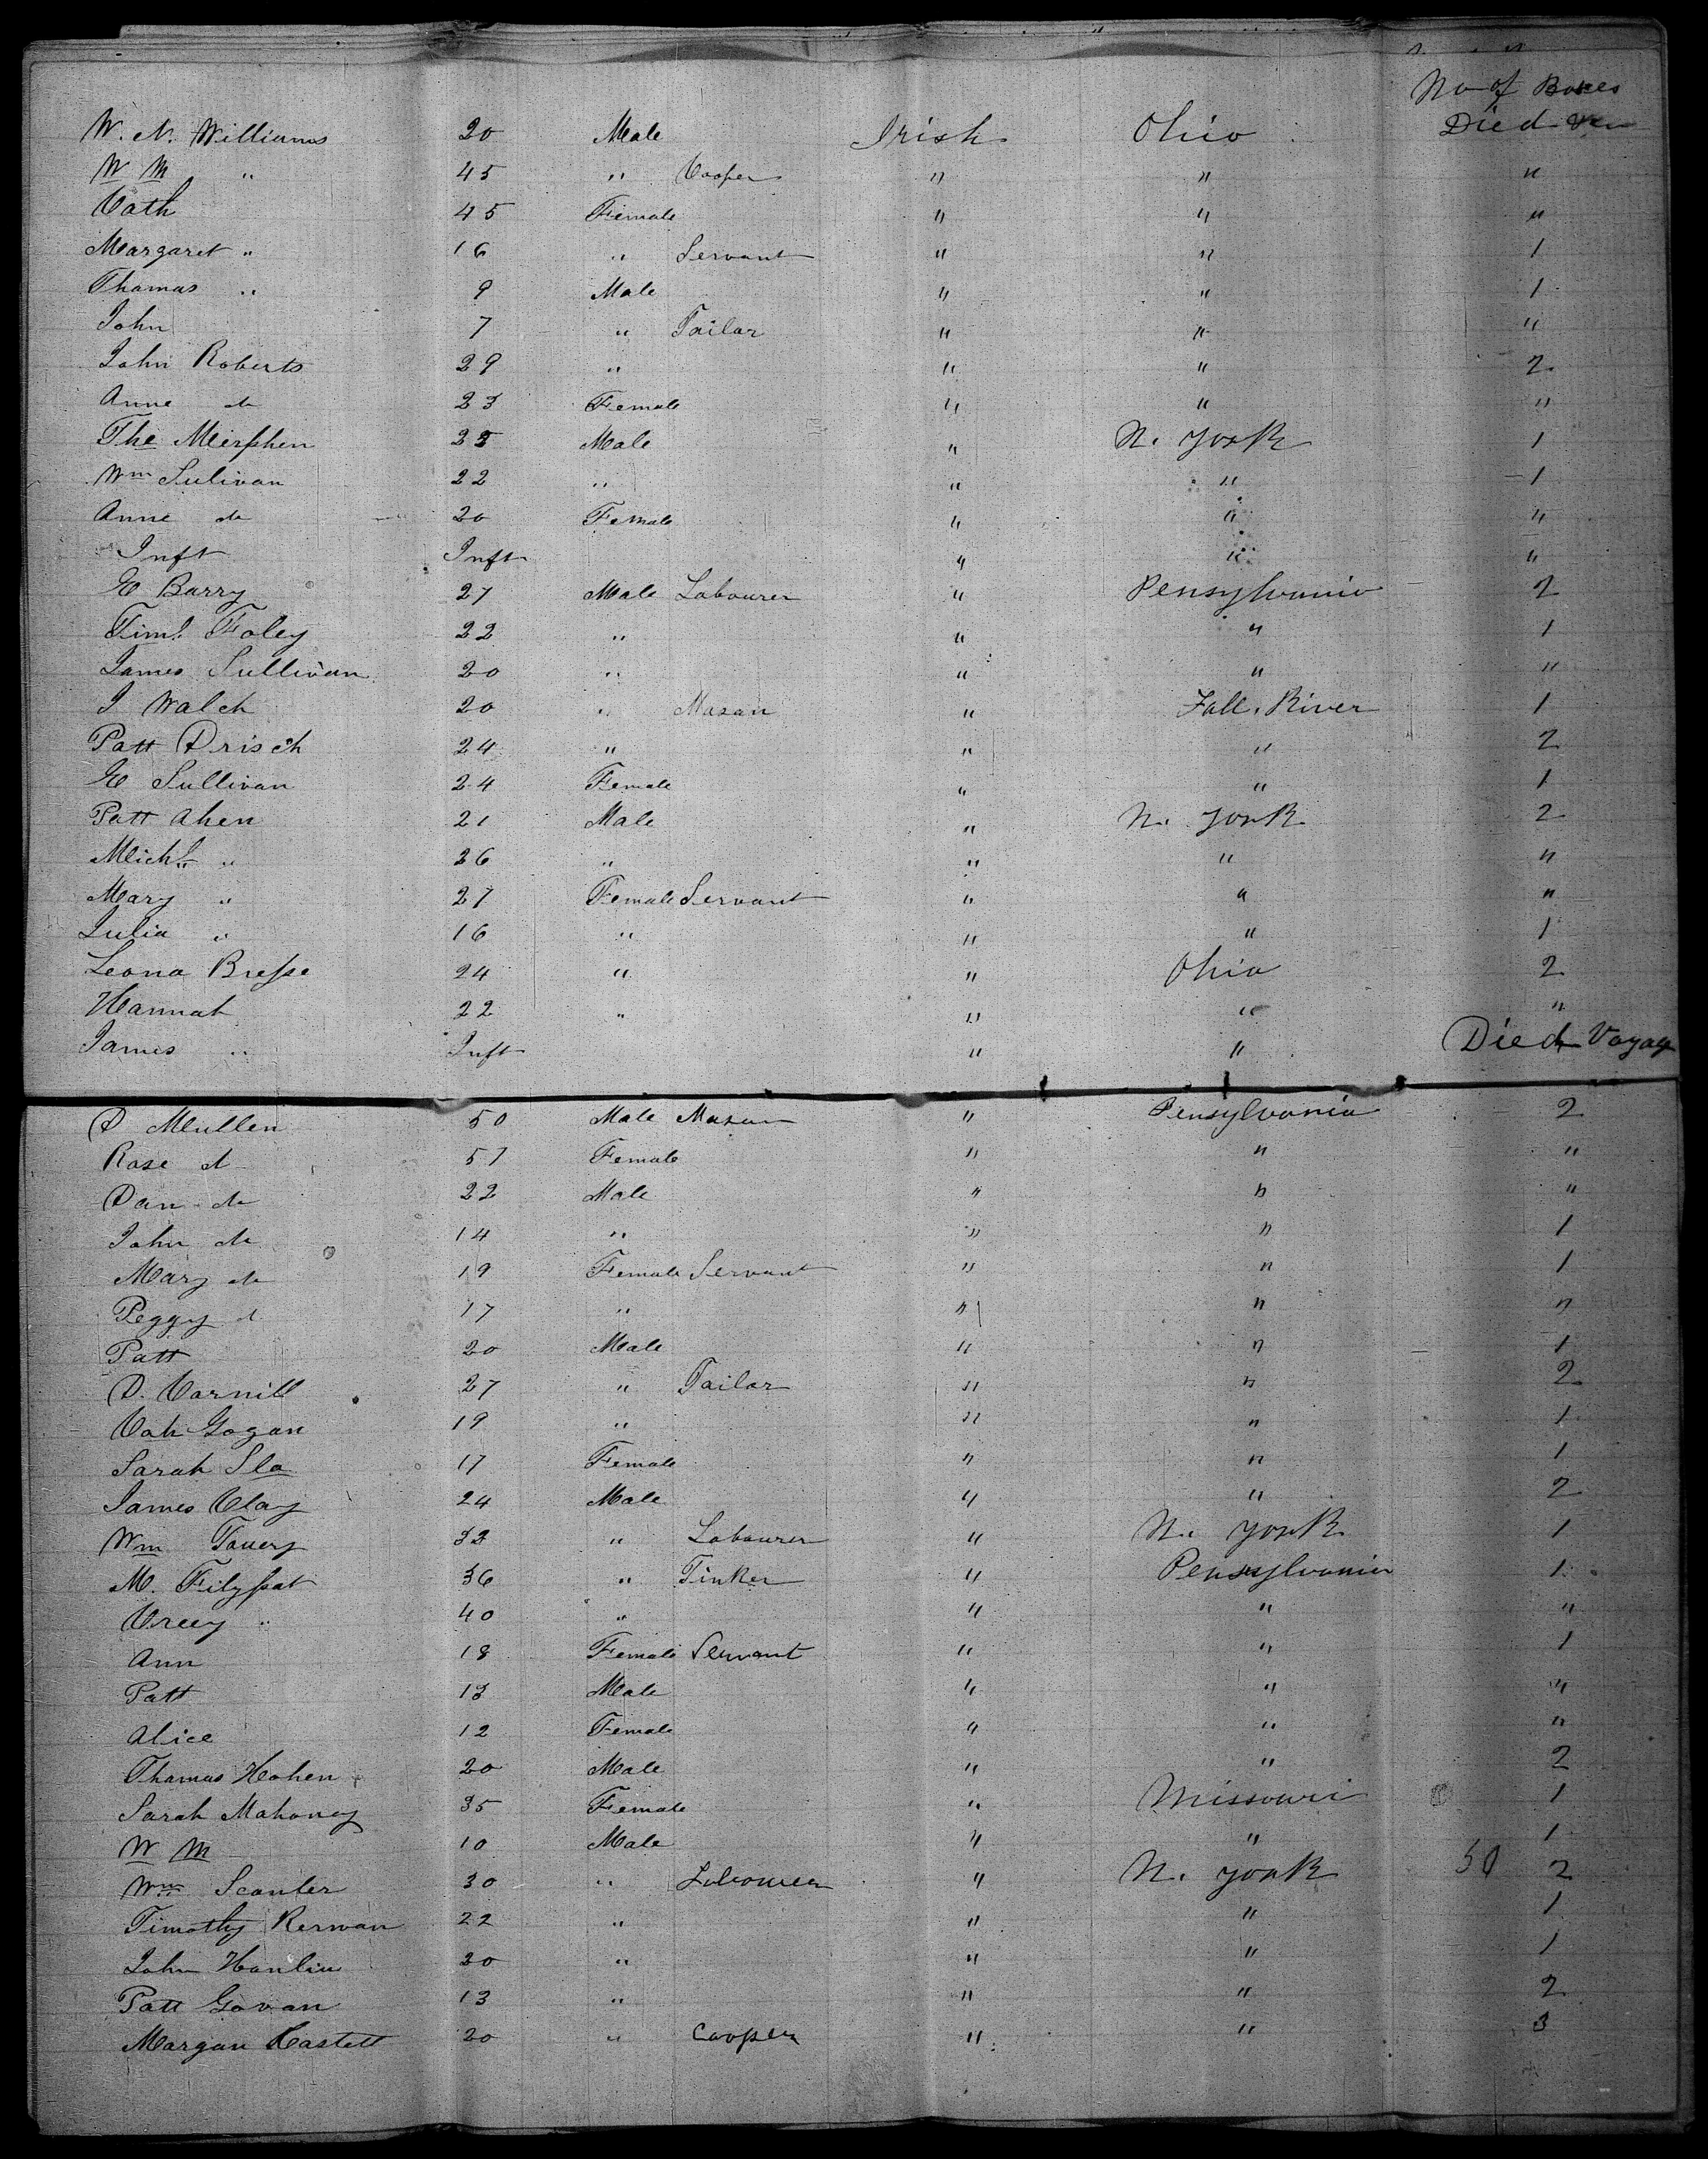 No of Boxes
W. N. Williams 20 Male Irish Ohio Died
W M " 45 " Cooper " " "
Cath 45 Female " " "
Margaret " 16 " Servant " " 1
Thomas " 9 Male " " 1
John 7 " Tailor " " "
John Roberts 29 " " " 2
Anne do 23 Female " " "
Male " N. York 1
Wm Sulivan 22 " " " 1
Anne do 20 Female " " "
Inft Inft " " "
E Barry 27 Male Labourer " Pensylvania 2
Timy. Foley 22 " " " 1
James Sullivan 20 " " " "
J Walch 20 " Mason " Fall River 1
Patt Drisch 24 " " " 2
E Sullivan 24 Female " " 1
Patt Ahen 21 Male " N. York 2
Michl " 26 " " " "
Mary " 27 Female Servant " " "
Julia " 16 " " " 1
Leona Bresse 24 " " Ohio 2
Hannah 22 " " " "
James " Inft " " Died Voyag
D Mullen 50 Male Mason " Pensylvania 2
Rose d 57 Female " " "
Dan do 22 Male " " "
John do 14 " " " 1
Mary do 19 Female Servant " " 1
Peggy d 17 " " " "
Patt 20 Male " " 1
D. Carnill 27 " Tailor " " 2
Cah Gogan 19 " " " 1
Sarah Sla 17 Female " " 1
James Clay 24 Male " " 2
Wm Tauery 32 " Labourer " N. York 1
M. Fitzpat 36 " Tinker " Pensylvania 1
40 " " " "
Ann 18 Female Servant " " 1
Patt 13 Male " " "
Alice 12 Female " " "
Thomas Hohen 20 Male " " 2
Sarah Mahoney 35 Female " Missouri 1
W M 10 Male " " 1
Wm Scanler 30 " Labourer " N. York 50 2
Timothy Kerwan 22 " " " 1
John Hanlin 20 " " " 1
Patt Govan 13 " " " 2
Morgan Hastett 20 " Cooper " " 3